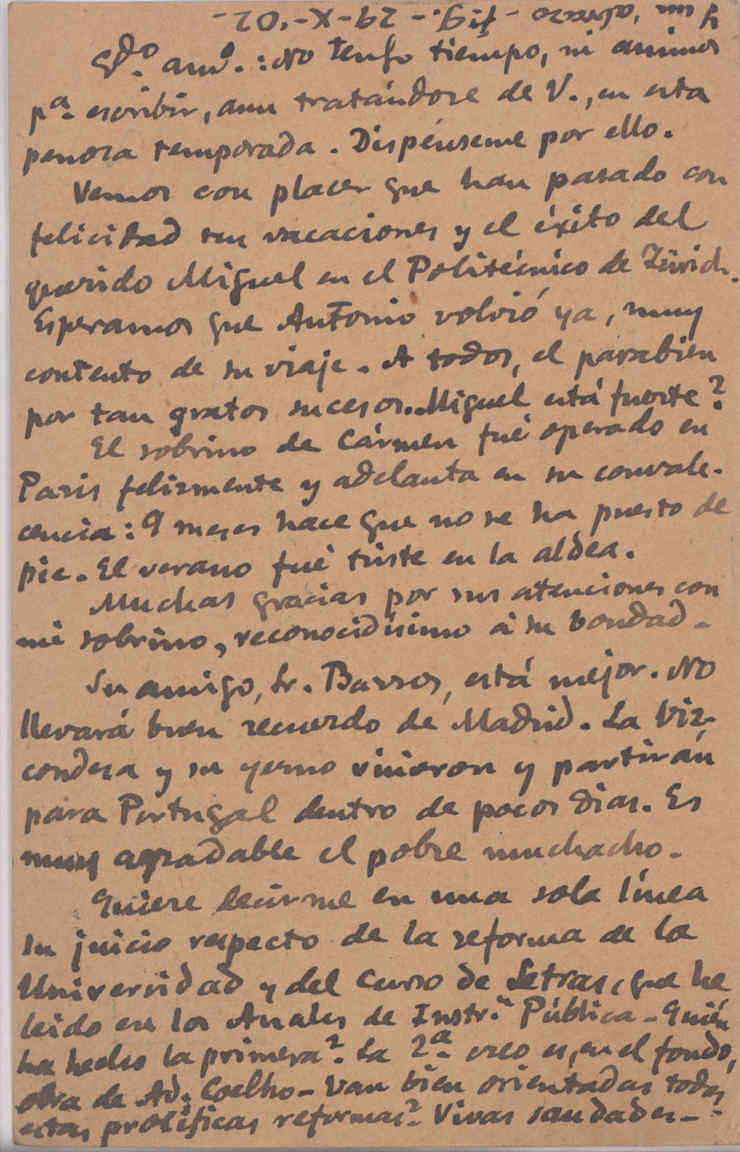 Qdo. amo.: No tengo tiempo, ni animos
pa. escribir, aun tratándose de V., en esta
penosa temporada. Dispénseme por ello.
Vemos con placer que han pasado con
felicidad sus vacaciones y el éxito del
querido Miguel en el Politécnico de Zürich.
Esperamos que Antonio volvió ya, muy
contento de su viaje. A todos, el parabien
por tan gratos sucesos. Miguel está fuerte?
El sobrino de Cármen fué operado en
Paris felizmente y adelanta en su convale-
cencia: 9 meses hace que no se ha puesto de
pie. El verano fué triste en la aldea.
Muchas gracias por sus atenciones con
mi sobrino, reconocidísimo á su bondad.
Su amigo, Sr. Barros, está mejor. No
llevará buen recuerdo de Madrid. La Viz-
condesa y su yerno vinieron y partirán
para Portugal dentro de pocos dias. Es
muy agradable el pobre muchacho.
Quiere decirme en una sola línea
su juicio respecto de la reforma de la
Universidad y del Curso de Letras, que he
leido en los Anales de Instr.n Pública - Quién
ha hecho la primera? La 2a. creo es, en el fondo,
obra de Ad. Coelho - Van bien orientadas todas
estas prolíficas reformas? Vivas saudades -
29-X-'02-